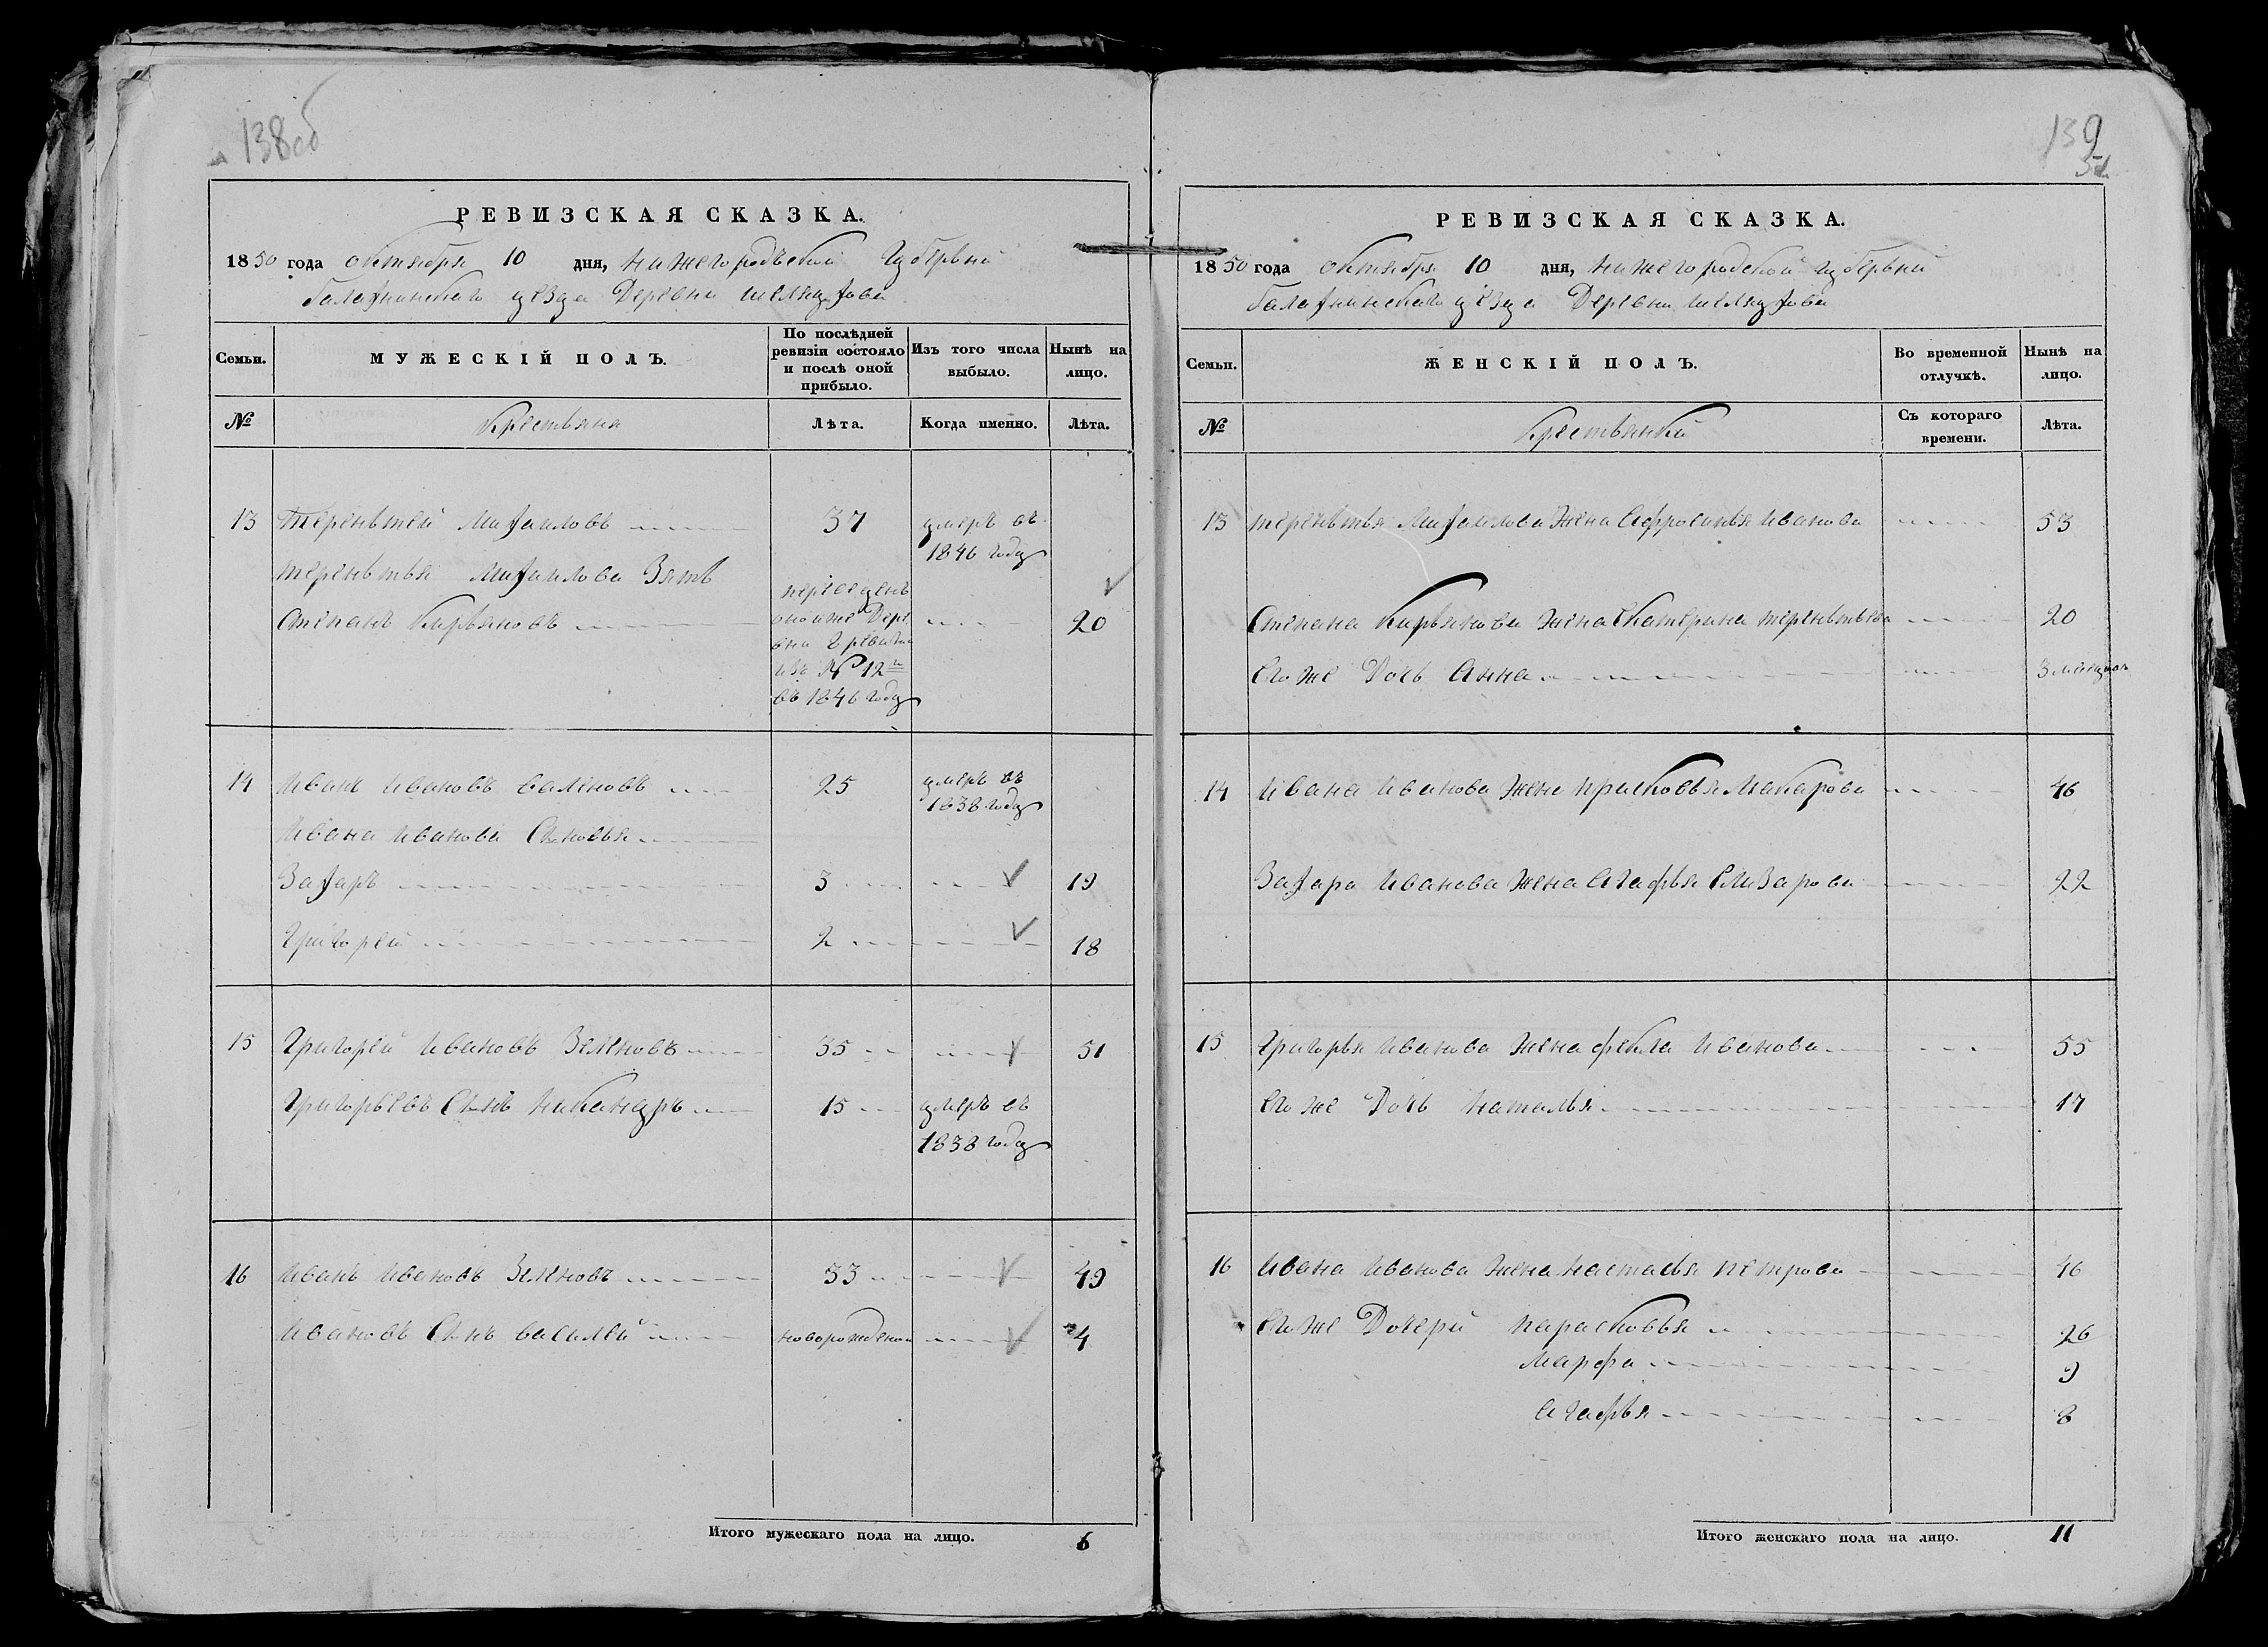 138об
РЕВИЗСКАЯ СКАЗКА.
1850 года октября 10 дня, нижегородской губернии
балахнинского уезда Деревни шеляухова
Семьи.
МУЖЕСКІЙ ПОЛЪ.
По послѣдней ревизіи состояло и послѣ оной прибыло.
Изъ того числа выбыло.
Нынѣ на лицо.
№
Крестьяня
Лѣта.
Когда именно.
Лѣта.
13 терентей Михаиловъ 37 умеръ въ
1846 году
терентья Михаилова Зять
Степанъ Кирьяновъ 20
изъ № 12
въ 1846 году
14 Иванъ Ивановъ 25 умеръ въ
1838 году
Ивана Иванова Сыновья
Захаръ 3 19
Григорей 2 18
15 Григорей Ивановъ Зеленовъ 35 51
Григорьевъ Сынъ Никандръ 15 умеръ въ
1838 году
16 Иванъ Ивановъ Зеленовъ 33 49
Ивановъ Сынъ василей новорожденой 4
Итого мужескаго пола на лицо. 6
139
РЕВИЗСКАЯ СКАЗКА.
1850 года октября 10 дня, нижегородской губернии
балахнинского уезда Деревни шеляухова
Семьи.
ЖЕНСКІЙ ПОЛЪ.
Во временной отлучкѣ.
Нынѣ на лицо.
№
Крестьянки
Съ котораго времени.
Лѣта.
13 терентья Михаилова Жена Афросинья Иванова 53
Степана Кирьянова Жена Екатерина терентьева 20
Его же Дочь Анна 3
14 Ивана Иванова Жена прасковья Макарова 46
Захара Иванова Жена Агафья Елизарова 22
15 Григорья Иванова Жена фекла Иванова 55
Его же Дочь Наталья 17
16 Ивана Иванова Жена Настасья петрова 46
Его же Дочери парасковья 26
Марфа 9
Агафья 8
Итого женскаго пола на лицо. 11